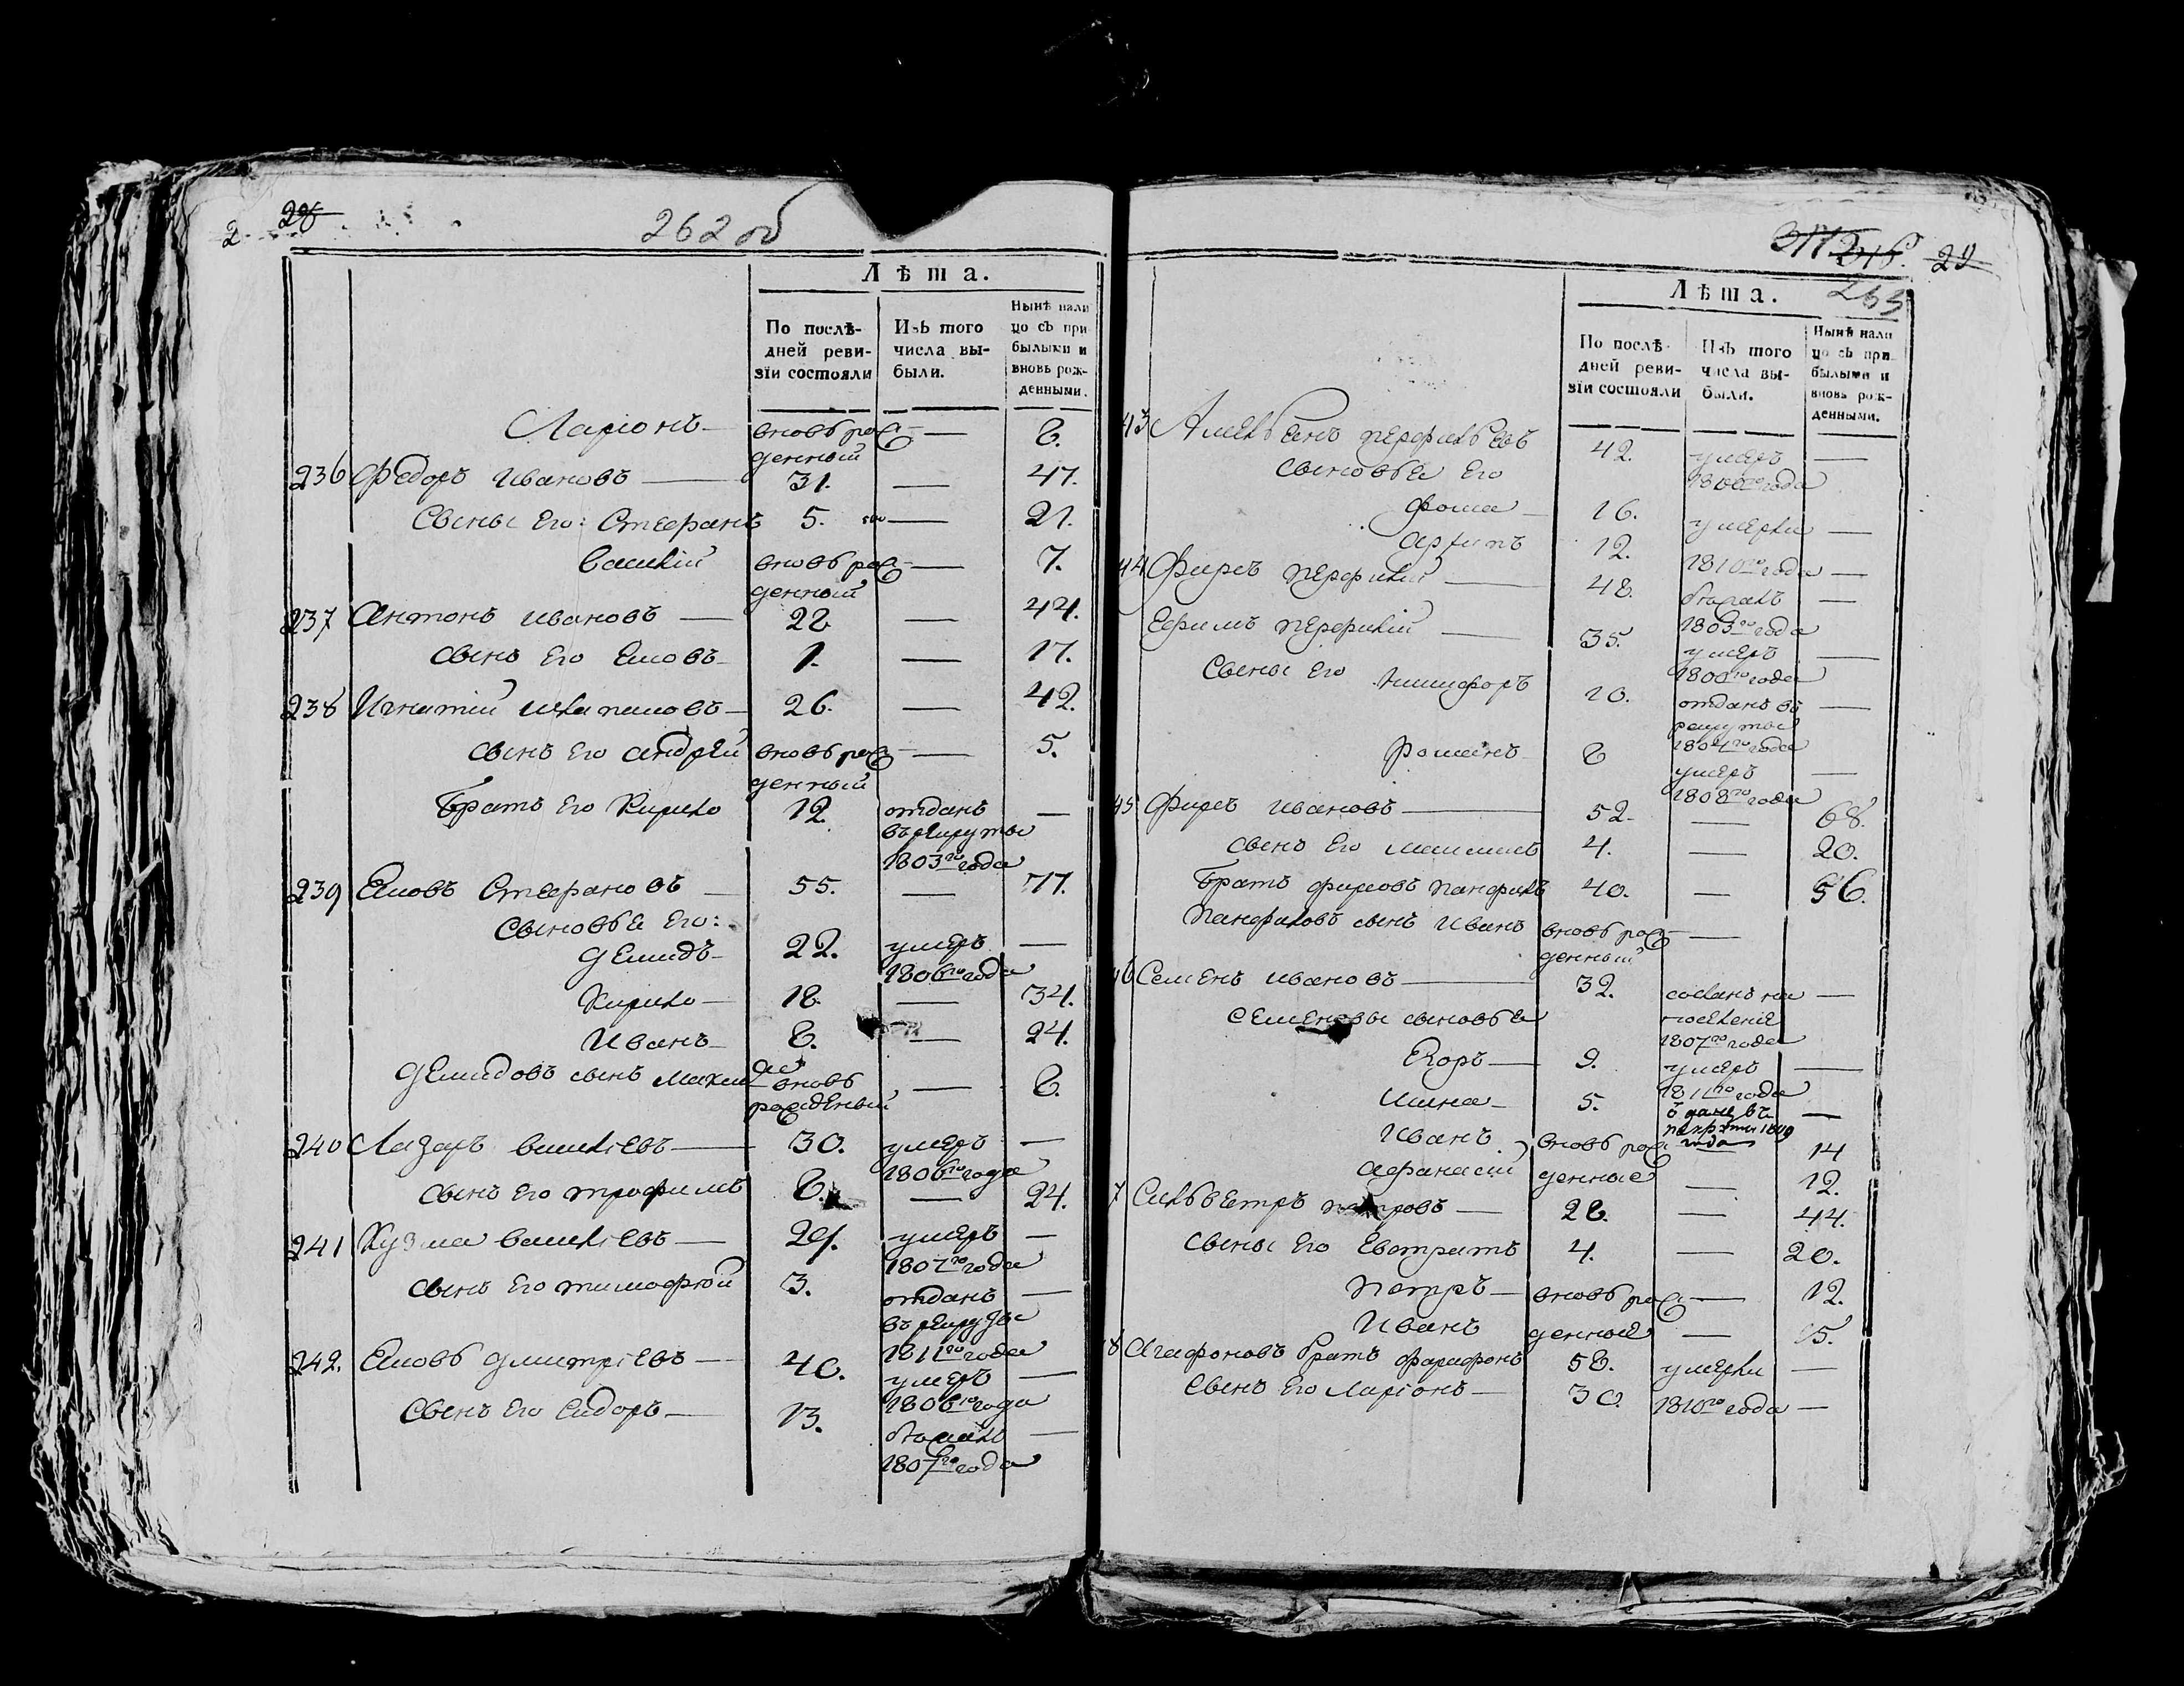 2
28
262 об
Лѣта.
По послѣ-
дней реви-
зіи состояли
Изъ того
числа вы-
были.
Нынѣ нали
цо съ при
былыми и
вновь рож-
денными.
Ларіонъ вновь рож- — 8.
денный
236 Федоръ Ивановъ 31. — 47.
Сыны его: Стефанъ 5. — 21.
Василій вновь рож- — 7.
денный
237 Антонъ Ивановъ 28 — 44.
сынъ его Емовъ 1. — 17.
238 Игнатій 26. — 42.
сынъ его Андрей вновь рож- — 5.
денный
Братъ его Кирило 12. отданъ —
въ рекруты
1803го года
239 Стефановъ 55. — 71.
Сыновья его:
Демидъ 22. умеръ —
1806го года
Кирило 18. — 34.
Иванъ 8. — 24.
Демидовъ сынъ вновь — 8.
рожденый
240 Лазарь Васильевъ 30. умеръ —
1806го года
сынъ его Трофимъ 8. — 24.
241 Кузма Васильевъ 29. умеръ —
1807го года
сынъ его Тимофей 3. отданъ —
въ рекруты
1811го года
242. Дмитріевъ 40. умеръ —
1806го года
сынъ его Сидоръ 13. бежалъ —
1807го года
317 29
263
Лѣта.
По послѣ-
дней реви-
зіи состояли
Изъ того
числа вы-
были.
Нынѣ нали
цо съ при-
былыми и
вновь рож-
денными.
43 Перфильевъ 42. умеръ —
сыновья его 1806го года
Фома 16. умерли —
Архипъ 12. 1810го года —
44 Фирсъ Перфильи 48. бежалъ —
1803го года
Ефимъ Перфилій 35. умеръ —
1800го года
Сыны его Никифоръ 10. отданъ въ —
рекруты
1804го года
Романъ 8 умеръ —
1808го года
45 Фирсъ Ивановъ 52. — 68.
сынъ его Максимъ 4. — 20.
Братъ Фирсовъ Панфилъ 40. — 56.
Панфиловъ сынъ Иванъ вновь рож- —
денный
46 Семенъ Ивановъ 32. сосланъ на —
поселеніе
Семеновы сыновья 1807го года
Егоръ 9. умеръ —
1811го года
Мина 5. —
года
Иванъ вновь рож 14
Афанасій денные — 12.
7 Сильвестръ Петровъ 28. — 44.
Сыны его Евстратъ 4. — 20.
Петръ вновь рож — 12.
Иванъ денные — 15.
8 Агафоновъ братъ Фарафонъ 58. умерли —
Сынъ его Ларіонъ 30. 1810го года —